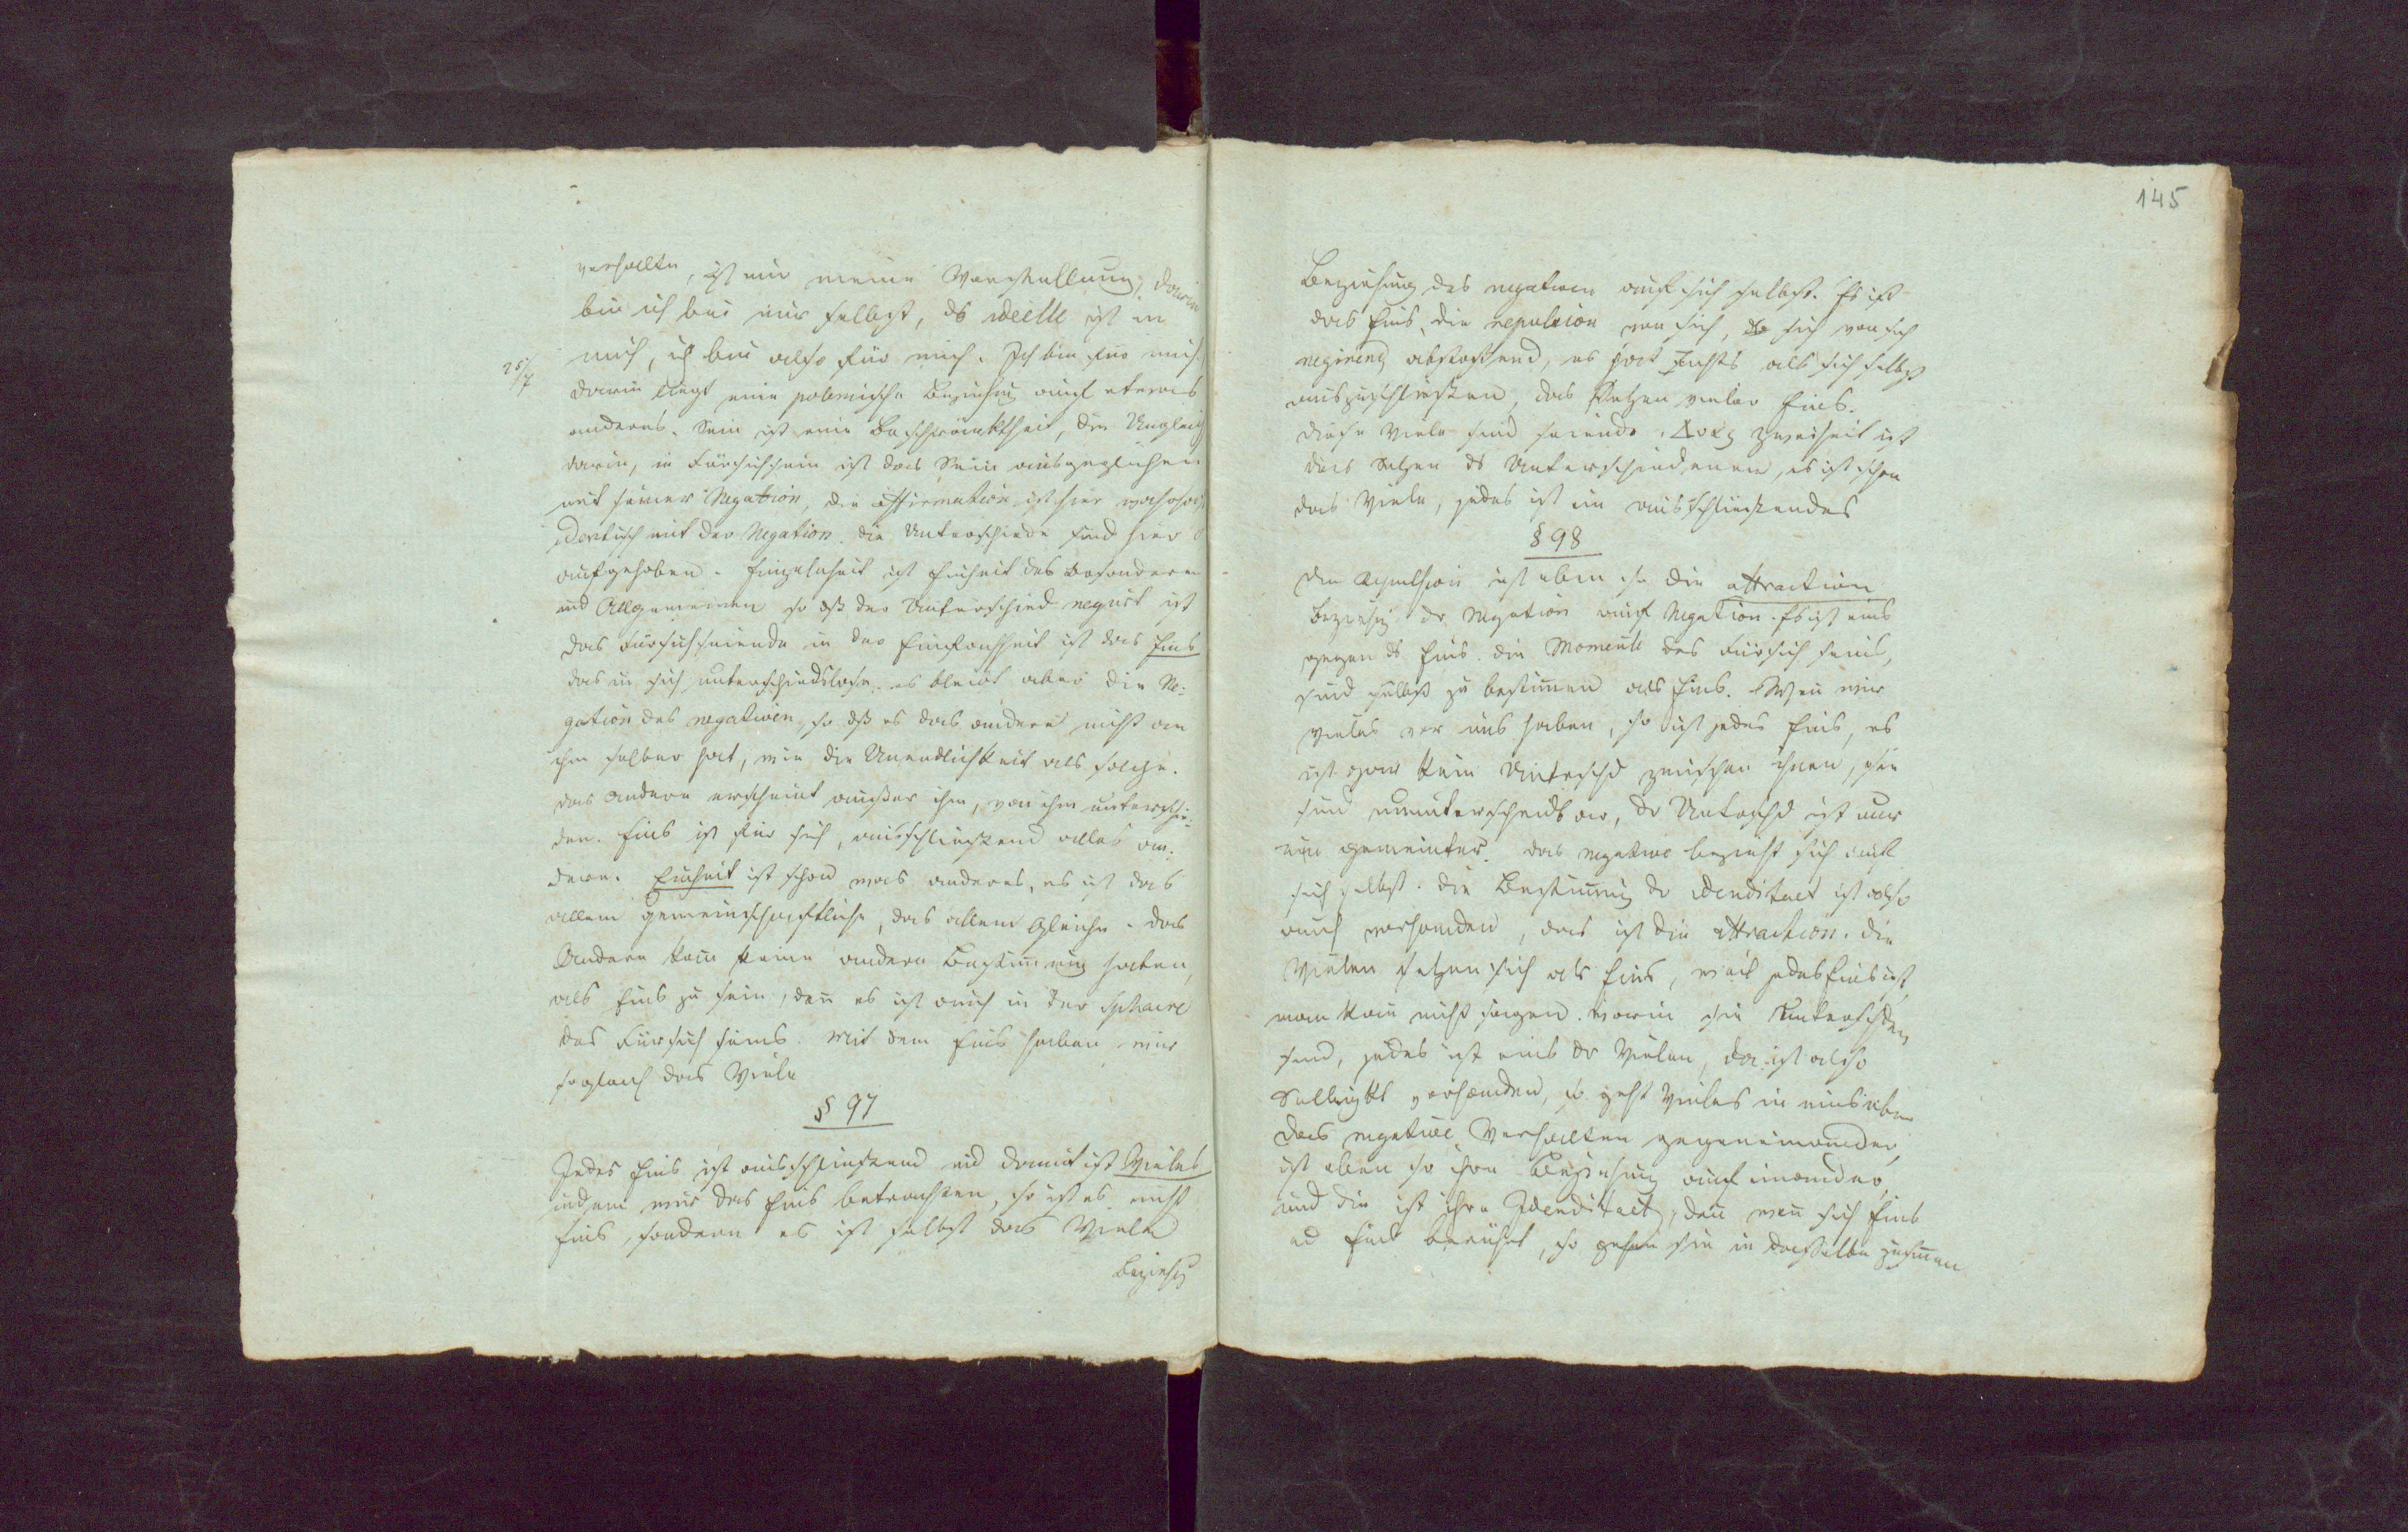 verhalte, ist nur meine Vorstellung, darin
bin ich bei mir selbst, ds ideelle ist in
mich, ich bin also für mich. Ich bin für mich
25/7
darin liegt eine polemische Beziehung auf etwas
anderes. Sein ist eine Beschränktheit, die Ungleich
darin, im Fürsichsein ist das Sein ausgeglichen
mit seiner Negation, die Affirmation ist hier
identisch mit der Negation. die Unterschiede sind hier
aufgehoben. Einzelnheit ist Einheit des Besondern
und Allgemeinen so dß der Unterschied negirt ist
das Fürsichseiende in der Einfachheit ist das Eins
das in sich unterschiedslose. es bleibt aber die Ne-
gation des negativen, so dß es das andere nicht an
ihm selber hat, wie die Unendlichkeit als solche.
das Andere erscheint außer ihm, von ihm unterschie-
den. Eins ist für sich, ausschließend alles an-
dere. Einheit ist schon was anderes, es ist das
allem gemeinschaftliche, das allem Gleiche. das
Andere kann keine andere Bestimmung haben,
als Eins zu sein, denn es ist auch in der Sphaere
des Fürsichseins. Mit dem Eins haben wir
sogleich das Viele
§ 97
Jedes Eins ist ausschließend und damit ist Vieles
indem wir das Eins betrachten, so ist es nicht
Eins, sondern es ist selbst das Viele
Beziehg
145
Beziehung des negativen auf sich selbst. Es ist
das Eins, die repulsion von sich, sich von sich
negirend abstoßend, es hat Nichts als sich selbst
auszuschließen, das Setzen vieler Eins.
diese Viele sind seiende. Zweiheit ist
das Setzen ds Unterschiedenen, es ist schon
das Viele, jedes ist ein ausschließendes
§ 98
Die Repulsion ist eben so die attraction
Beziehg der Negation auf Negation. Es ist eins
gegen ds Eins. die Momente des Fürsichseins,
sind selbst zu bestimmen als Eins. Wenn wir
vieles vor uns haben, so ist jedes Eins, es
ist gar kein Unterschd zwischen ihnen, sie
sind ununterscheidbar, der Unterschd ist nur
ein gemeinter. das negative bezieht sich auf
sich selbst. die Bestimmung der Idenditaet ist also
auch vorhanden, das ist die attraction. die
Vielen setzen sich als Eins, weil jedes Eins ist,
man kann nicht sagen, worin sie unterschden
sind, jedes ist eins der Vielen, da ist also
vorhanden, so geht Vieles in eins über
das negative Verhalten gegeneinander,
ist eben so ihre Beziehung auf einander,
und die ist ihre Idenditaet, denn wenn sich Eins
ud Eins berührt, so gehen sie in dasselbe zusammen